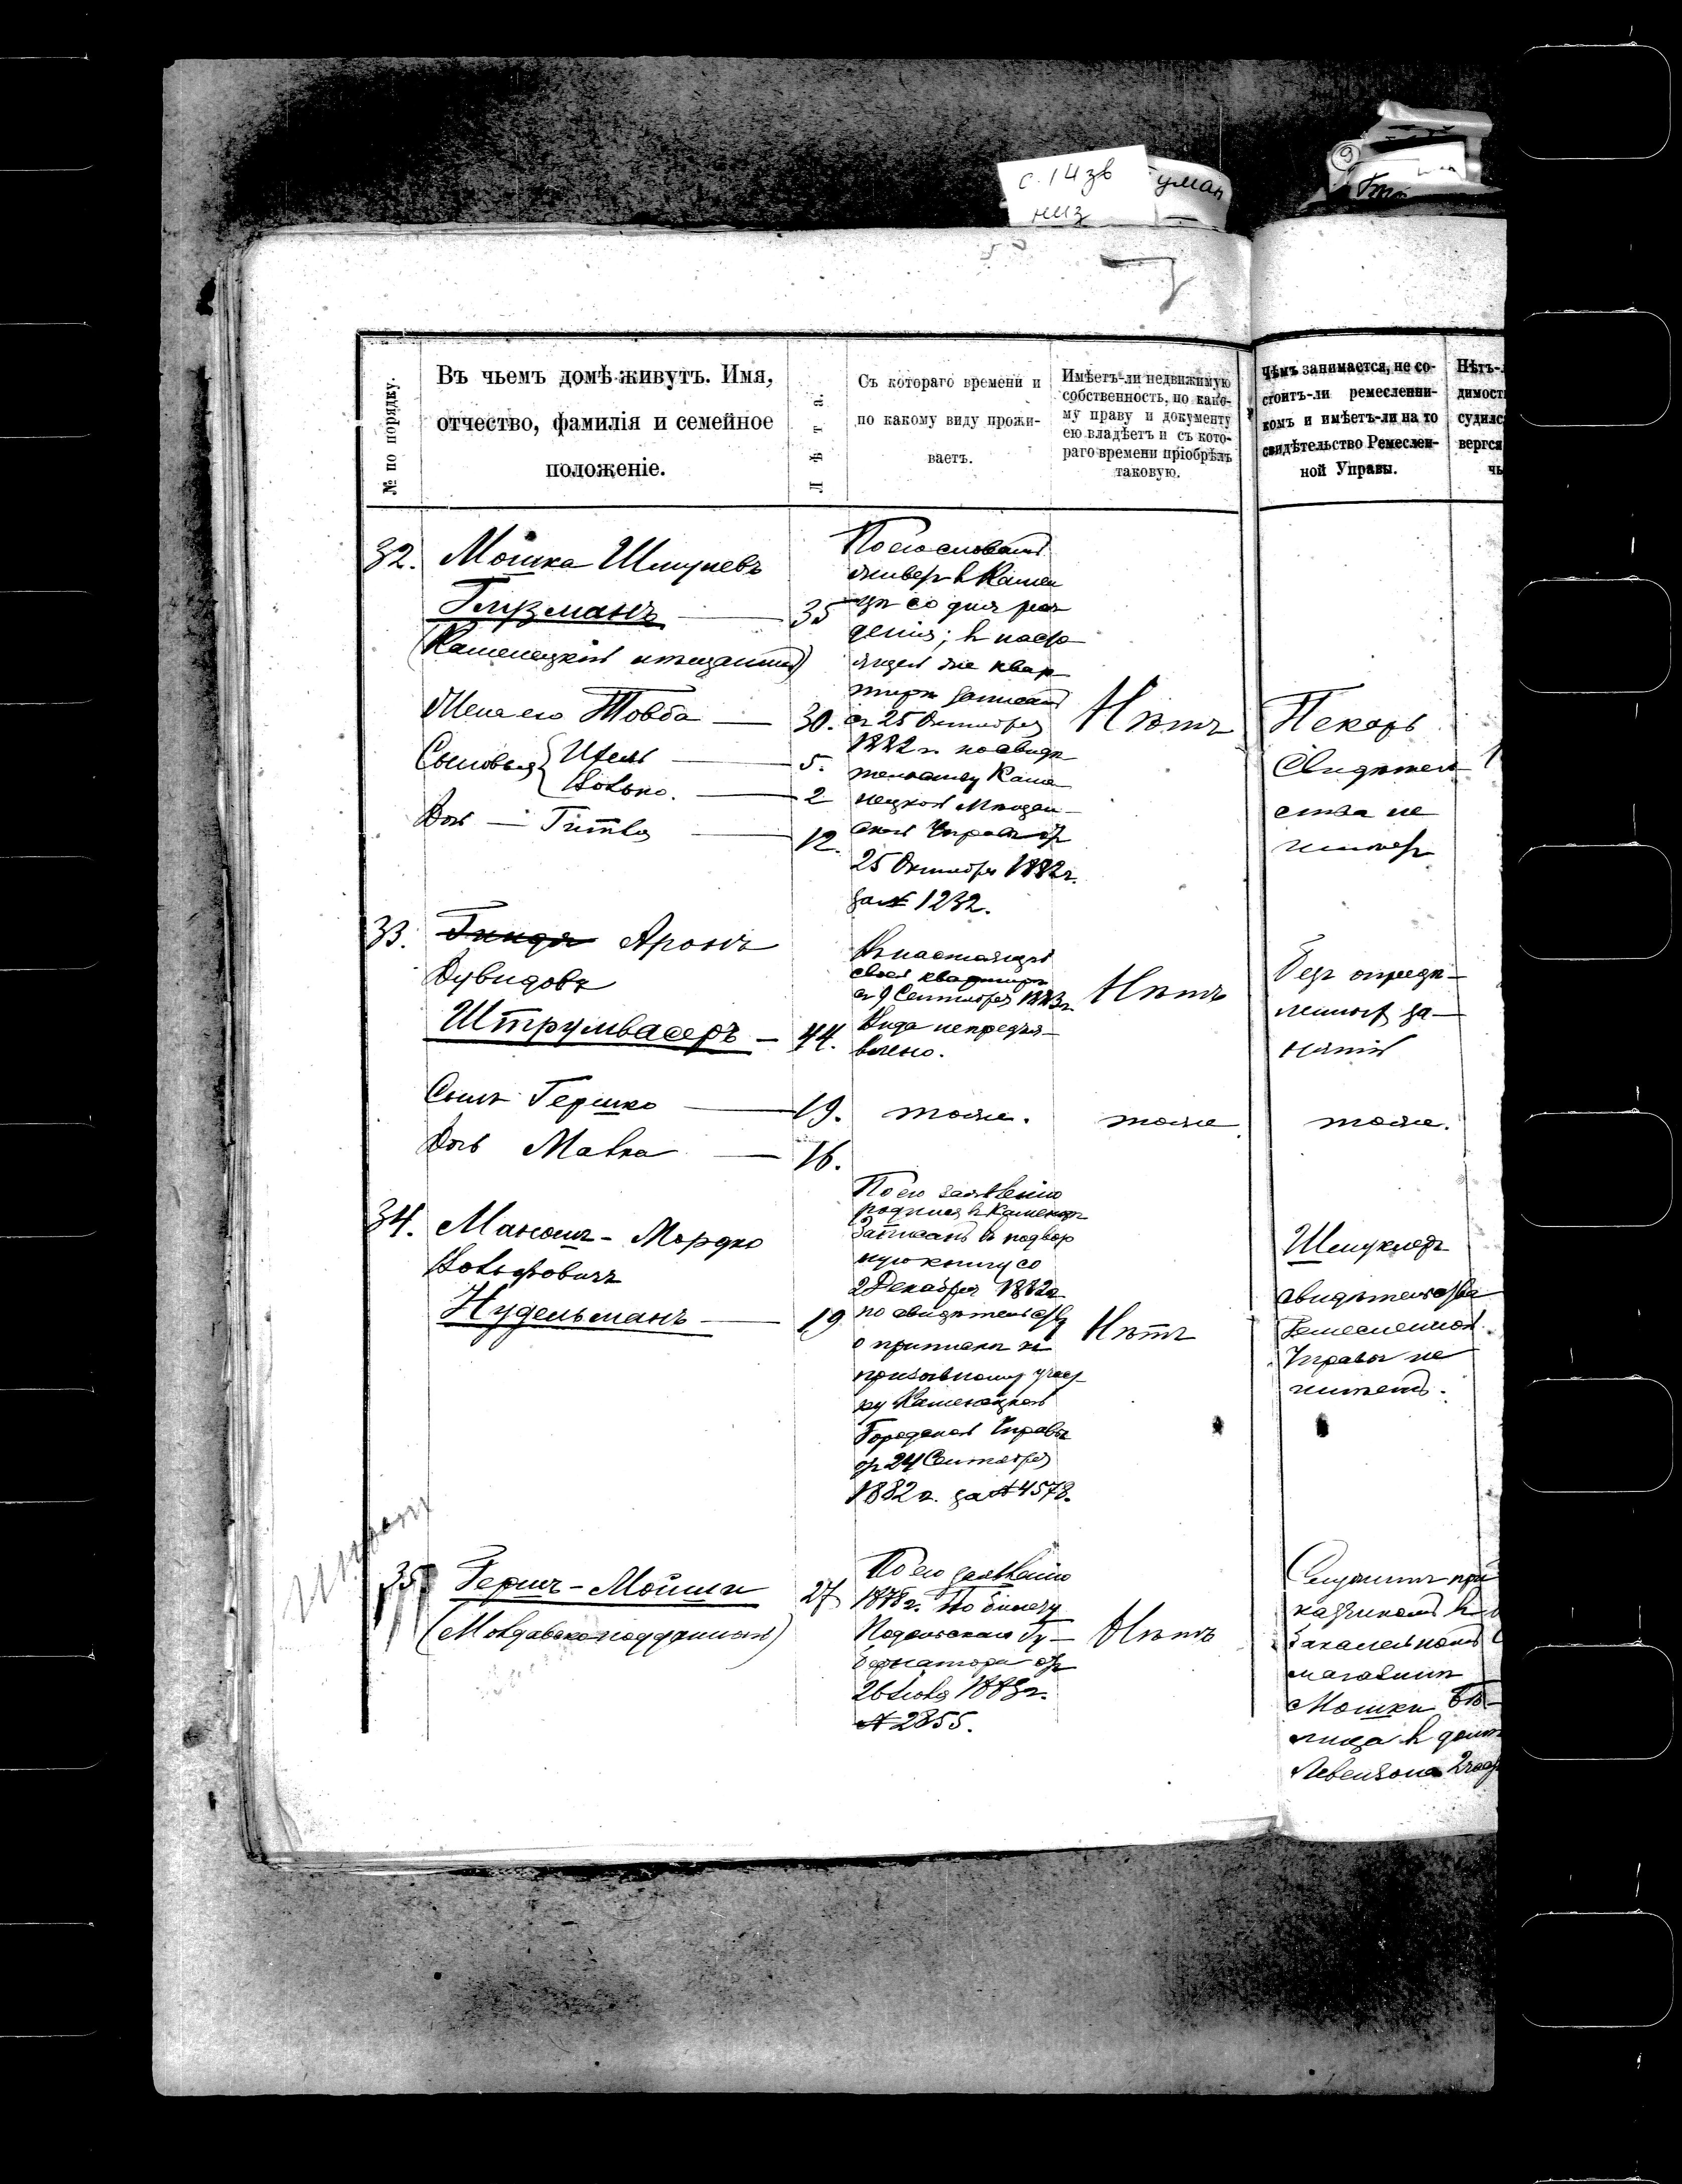 с. 14 зв
низ
уман
9
№ по порядку.
Въ чьемъ домѣ живутъ. Имя,
отчество, фамилія и семейное
положеніе.
Лѣта.
Съ котораго времени и
по какому виду прожи-
ваетъ.
Имѣетъ-ли недвижимую
собственность, по како-
му праву и документу
ею владѣетъ и съ кото-
раго времени пріобрѣлъ
таковую.
Чѣмъ занимается, не со-
стоитъ-ли ремесленни-
комъ и имѣетъ-ли на то
свидѣтельство Ремеслен-
ной Управы.
Нѣтъ-
димост
судилс
вергся
32. Мошка Шмулевъ
Глузманъ — 35
(Каменецкій мѣщанинъ)
Жена его Товба — 30.
Сыновья Ицель — 5.
Волько. — 2
Дочь — Гитля — 12.
По его словамъ
живетъ въ Камен
цѣ со дня рож
денія; въ насто
ящей же квар-
тирѣ записанъ
съ 25 Октября
1882 г. по свидѣ
тельству Каме
нецкой Мѣщан-
ской Управы отъ
25 Октября 1882 г.
за № 1232.
Нѣтъ
Пекарь
Свидѣтель-
ства не
имѣетъ
33. Аронъ
Дувидовъ
Штрумвасеръ — 44.
Сынъ Гершко — 19.
Дочь Малка — 16.
Въ настоящей
своей квартирѣ
съ 9 Сентября 1883 г.
Вида не предъя-
влено.
тоже.
Нѣтъ
тоже.
Безъ опредѣ-
леннаго за-
нятія
тоже.
34. Манашъ - Мордко
Вольфовичъ
Нудельманъ — 19
По его заявленію
родился въ Каменцѣ
Записанъ въ подвор
ную книгу со
2 Декабря 1882 г.
по свидѣтельству
о припискѣ къ
призывному участ-
ку Каменецкой
Городской Управы
отъ 24 Сентября
1882 г. за № 4578.
Нѣтъ
Шмуклеръ
свидѣтельства
Ремесленной
Управы не
имѣетъ.
35 Гершъ - Мойши 27
(Молдавско подданный)
По его заявленію
1878 г. По билету
Подольскаго Гу-
бернатора отъ
26 Іюля 1883 г.
№ 2855.
Нѣтъ
Служитъ при
кащикомъ въ
бакалейномъ
магазинѣ
Мошки Бѣ-
лица въ домѣ
Левензона 2 част